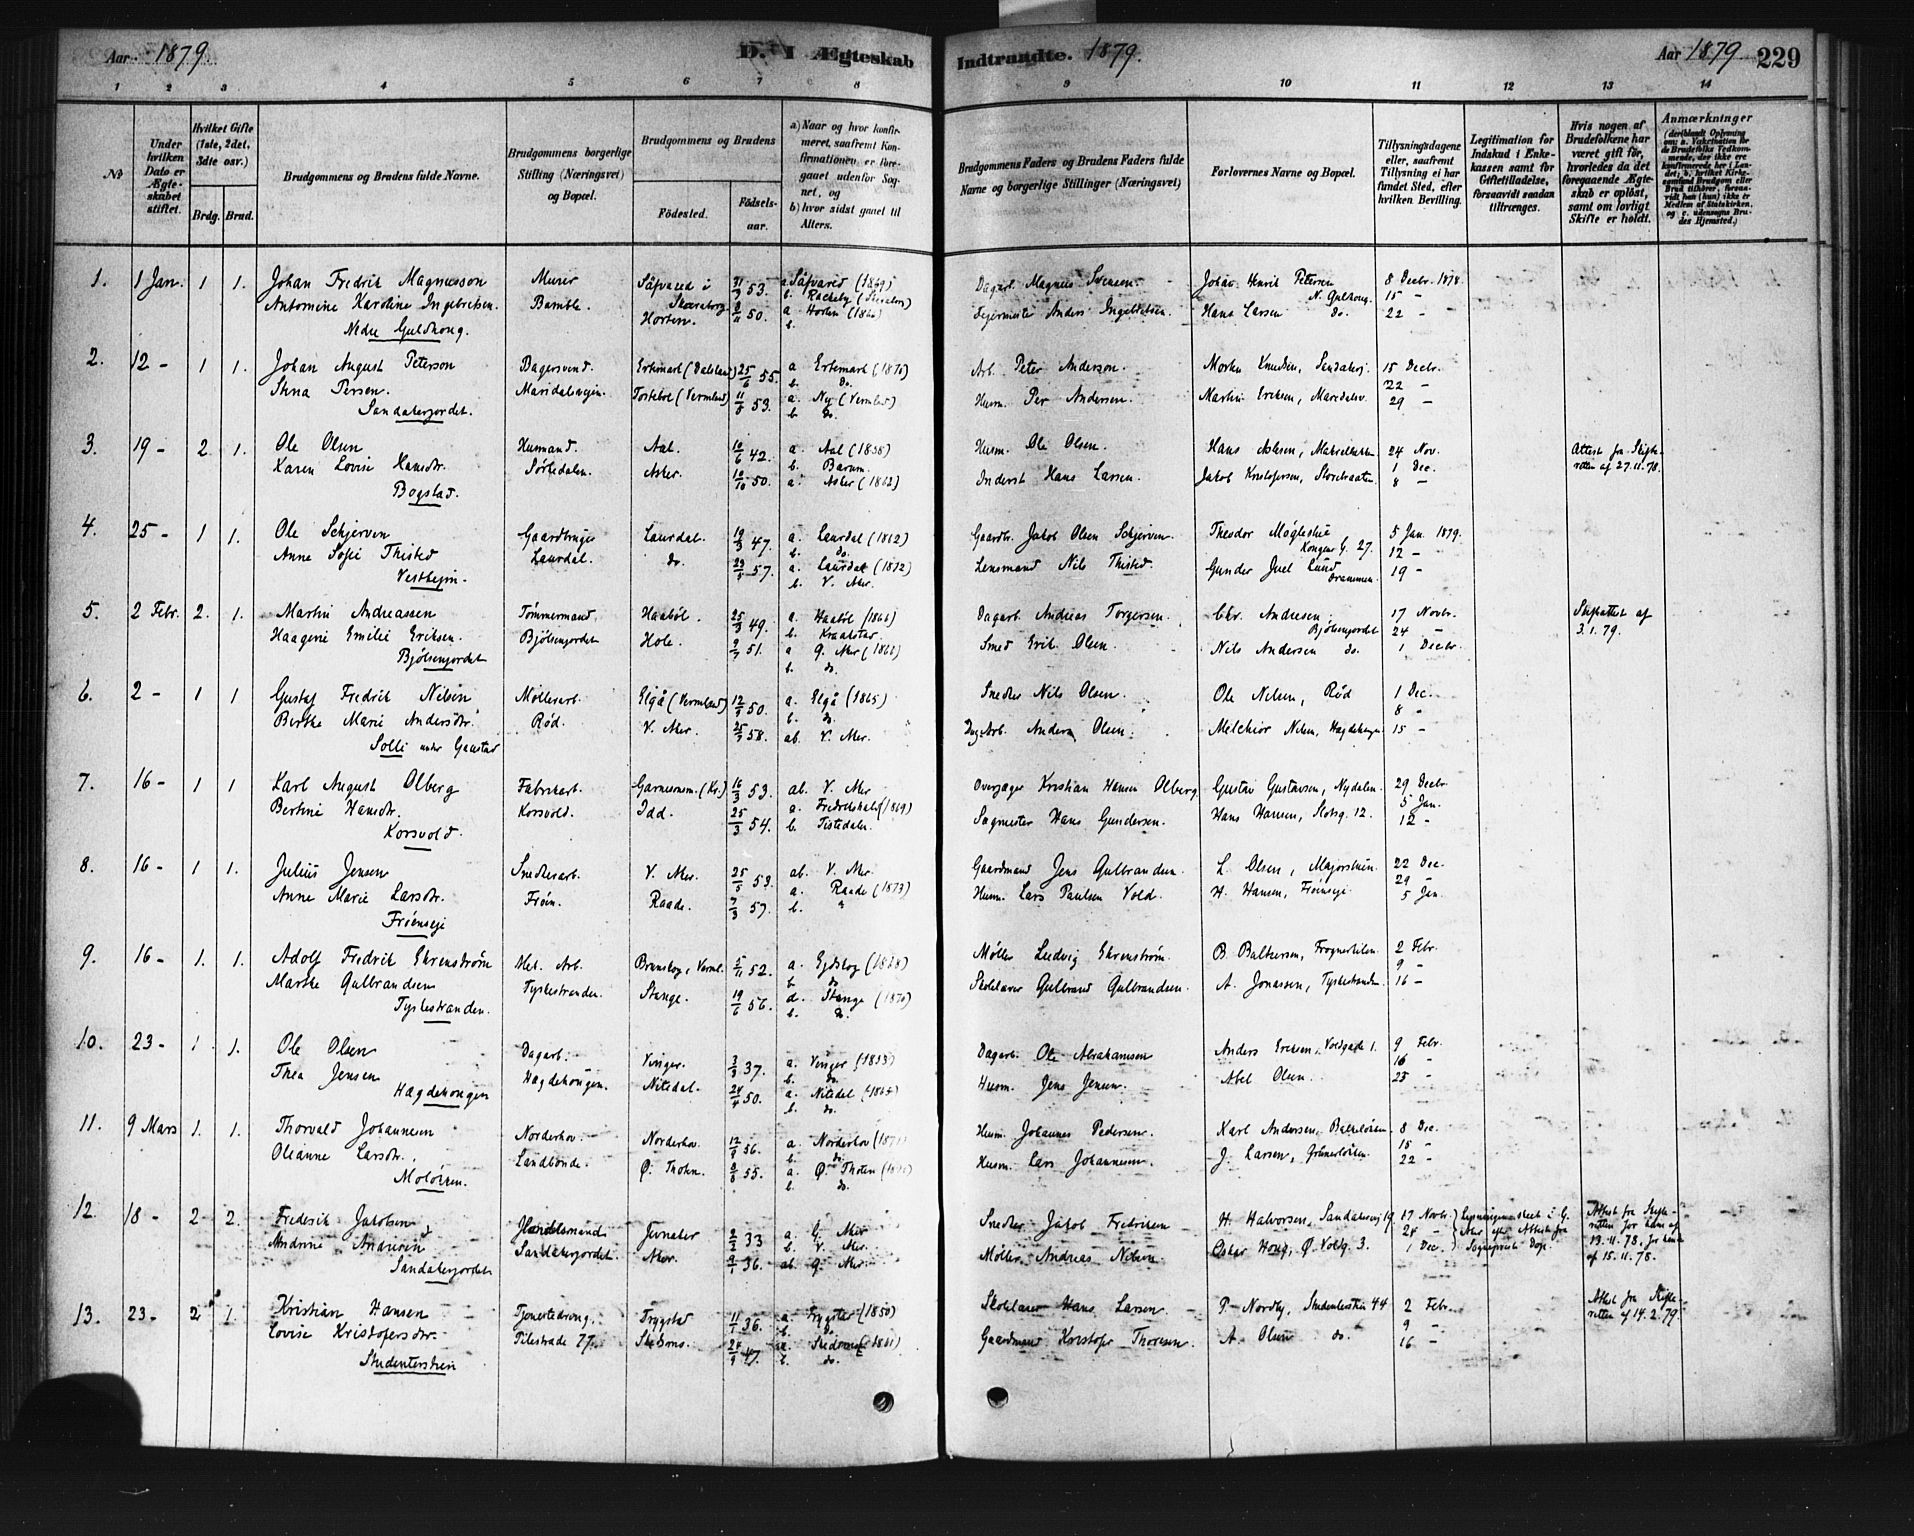 Aar 1879. D. I Ægteskab
1 2 3 4 5 6 7 8
No
Under hvilken Dato er Ægteskabet stiftet.
Hvilket Gifte (1ste, 2det, 3die osv.)
Brdg. Brud.
Brudgommens og Brudens fulde Navne.
Brudgommens borgerlige Stilling (Næringsvei) og Bopæl.
Brudgommens og Brudens
Fødested. Fødselsaar.
a) Naar og hvor konfirmeret, saafremt Konfirmationen er foregaaet udenfor Sognet, og
b) hvor sidst gaaet til Alters.
1. 1 Jan. 1 1. Johan Fredrik Magnusson Murer Såfvared i Skaraborg 53. a Såfvared (1869)
Antomine Karoline Ingebretsen. Bamble. Horten. 50. a Horten
Nedre Guldhoug.
2. 12 - 1 1. Johan August Peterson Bagersvend. Ertemark (Dalsland) 25/6 55. a Ertemark (1870)
Stina Persen. Maridalsveien. (Vermland) 11/5 53. a. Ny (Vermland)
Sandakerjordet. b. do.
3. 19 - 2. 1. Ole Olsen Husmand. Aal. 10/6 42. a. Aal (1858)
Karen Lovise Hansdtr. Sørkedalen. Asker. 10/10 50. b. Bærum. a. Asker (1862)
Bogstad.
4. 25 - 1 1. Ole Schjerven Gaardbruger Laurdal. 19/3 47. a. Laurdal (1862)
Anne Sofie Thisted Laurdal. do. 29/5 57. a. Laurdal (1872)
Vestheim. b. V. Aker.
5. 2 Febr. 2. 1. Martin Andreassen Tømmermand. Haabøl. 25/3 49. a. Haabøl (1866)
Haagine Emilie Eriksen. Bjølsenjordet Hole. 9/7 51. b. Kraakstad. a G. Aker
Bjølsenjordet b. do.
6. 2 - 1 1 Gustaf Fredrik Nilsen Møllerarb. Elgå (Vermland) 12/9 50. a. Elgå (1865)
Berthe Marie Andersdtr. Rød. V. Aker. 25/7 58. ab. V. Aker.
Solli under Gaustad
7. 16 - 1 1 Karl August Olberg Fabrikarb. Garnisonsm. (Kr.) 16/3 53. ab. V. Aker
Bertine Hansdtr. Korsvold. Idd. 25/3 54. a. Fredrikshald (1869)
Korsvold. b. Tistedalen.
8. 16 - 1 1. Julius Jensen Snedkerarb. V. Aker. 25/5 53. ab. V. Aker.
Anne Marie Larsdtr. Frøen. Raade. 7/3 57. a. Raade (1873)
Frøenseje b. "
9. 16 - 1. 1. Adolf Fredrik Ehrenstrøm Met. Arb. Brunskog, Verml. 5/11 52. a. Eydskog (1868)
Marthe Gulbrandsen Tyskestranden. Stange. 19/6 56. Stange (1870)
Tyskestranden. b. do.
10. 23 - 1 1. Ole Olsen Dagarb. Vinger. 3/3 37. a. Vinger (1853)
Thea Jensen Hægdehougen. Nitedal. 24/4 50. a. Nitedal
Hægdehougen b. do.
11. 9 Mars 1. 1. Thorvald Johannesen Norderhov. Norderhov. 12/9 56. a. Norderhov
Oleanne Larsdtr. Landbonde. Ø. Thoten. 8/8 55. a. Ø. Thoten
Moløkken. b. do.
12. 18 - 2 2. Frederik Jakobsen Handelsmand Jevnaker 2/2 33 a. G. Aker
Andrine Andresen Sandakerjordet. Aker. 9/1 36. b. V. Aker. ab. G. Aker.
Sandakerjordet
13. 23 - 2 1. Kristian Hansen Trygstad 11/1 36. a. Trygstad (1850)
Lovise Kristofersdtr. Pilestrædet 77. 24/9 47. (1861)
Studenterstien b. do.
Indtraadte. 1879. Aar 1879. 229
9 10 11 12 13 14
Brudgommens Faders og Brudens Faders fulde Navne og borgerlige Stillinger (Næringsvei)
Forlovernes Navne og Bopæl.
Tillysningsdagene eller, saafremt Tillysning ei har fundet Sted, efter hvilken Bevilling.
Legitimation for Indskud i Enkekassen samt for Giftetilladelse, forsaavidt saadan tiltrænges.
Hvis nogen af Brudefolkene har været gift før, hvorledes da det foregaaende Ægteskab er opløst, samt om lovligt Skifte er holdt.
Anmærkninger
(deriblandt Oplysning om: a. Vakcination for de Brudefolks Vedkommende, der ikke ere konfirmerede her i Landet; b. hvilket Kirkesamfund Brudgom eller Brud tilhører, forsavidt han (hun) ikke er Medlem af Statskirken, og c. udensogns Brudes Hjemsted.)
Dagarb. Magnus Svensen. Johan Henrik Petersen N. Gulhoug. 8 Decbr. 1878.
Anders Ingebretsen. Hans Larsen do. 15 - 22 -
Arb. Peter Anderson. Morten Knudsen, Sandakerj. 15 Decbr.
Husm. Per Andersen. Martin Eriksen, Maridalsv. 22 - 29 -
Husm. Ole Olsen. Hans 24 Nov. Attest fra Skifteretten af 27.11.78.
Inderst Hans Larsen. Jakob Kristofersen, 1 Dec. 8 -
Gaardbr. Jakob Olsen Schjerven Theodor Kongens G. 27. 5 Jan. 1879.
Lensmand Nils Thisted. Gunder Juel Lund Drammen. 12 - 19 -
Dagarb. Andreas Torgersen. Chr. Andresen. Bjølsenjordet 17 Novbr. Skifteattest af 3.1.79.
Smed Erik Olsen. Nils Andersen do. 24 - 1 Decbr.
Snedker Nils Olsen. Ole Nilsen, Rød 1 Dec.
Dag. Arb. Anders Olsen. Melchior Nilsen, Hægdehougen 8 - 15 -
Overjæger Kristian Hansen Olberg. Gustav Gustavsen, Nydalen. 29 Decbr.
Sagmester Hans Gundersen. Hans Hansen, Slotsg. 12. 5 Jan. 12 -
Gaardmand Jens Gulbrandsen. L. Olsen, Majorstuen. 22 Dec.
Husm. Lars Paulsen Vold. H. Hansen, Frøenseje 29 - 5 Jan.
Møller Ludvig Ehrenstrøm. B. Baltzersen, Frognerkilen. 2 Febr.
Skolelærer Gulbrand Gulbrandsen. A. Jonassen, Tyskestranden 9 - 16 -
Dagarb. Ole Abrahamsen Anders Eriksen, Voldgade 1. 9 Febr.
Husm. Jens Jensen. Abel Olsen. 16 - 23 -
Husm. Johannes Pedersen. Karl Andersen, 8 Dec.
Husm. Lars Johannesen. J. Larsen, Grünerløkken. 15 - 22 -
Snedker Jakob Fredriksen H. Halvorsen, Sandakervej 19. 17 Novbr. Lysningen skeet i G. Aker efter Attest fra Sogneprest Dop. Attest fra Skifteretten for ham af 13.11.78, for hende af 15.11.78.
Møller Andreas Nilsen Oskar Houg, Ø. Voldg. 3. 24 - 1 Dec.
Skolelærer Hans Larsen P. Nordby, Studenterstien 44 2 Febr. Attest fra Skifteretten af 14.2.79.
Gaardmand Kristofer Thoresen. A. Olsen do. 9 - 16 -